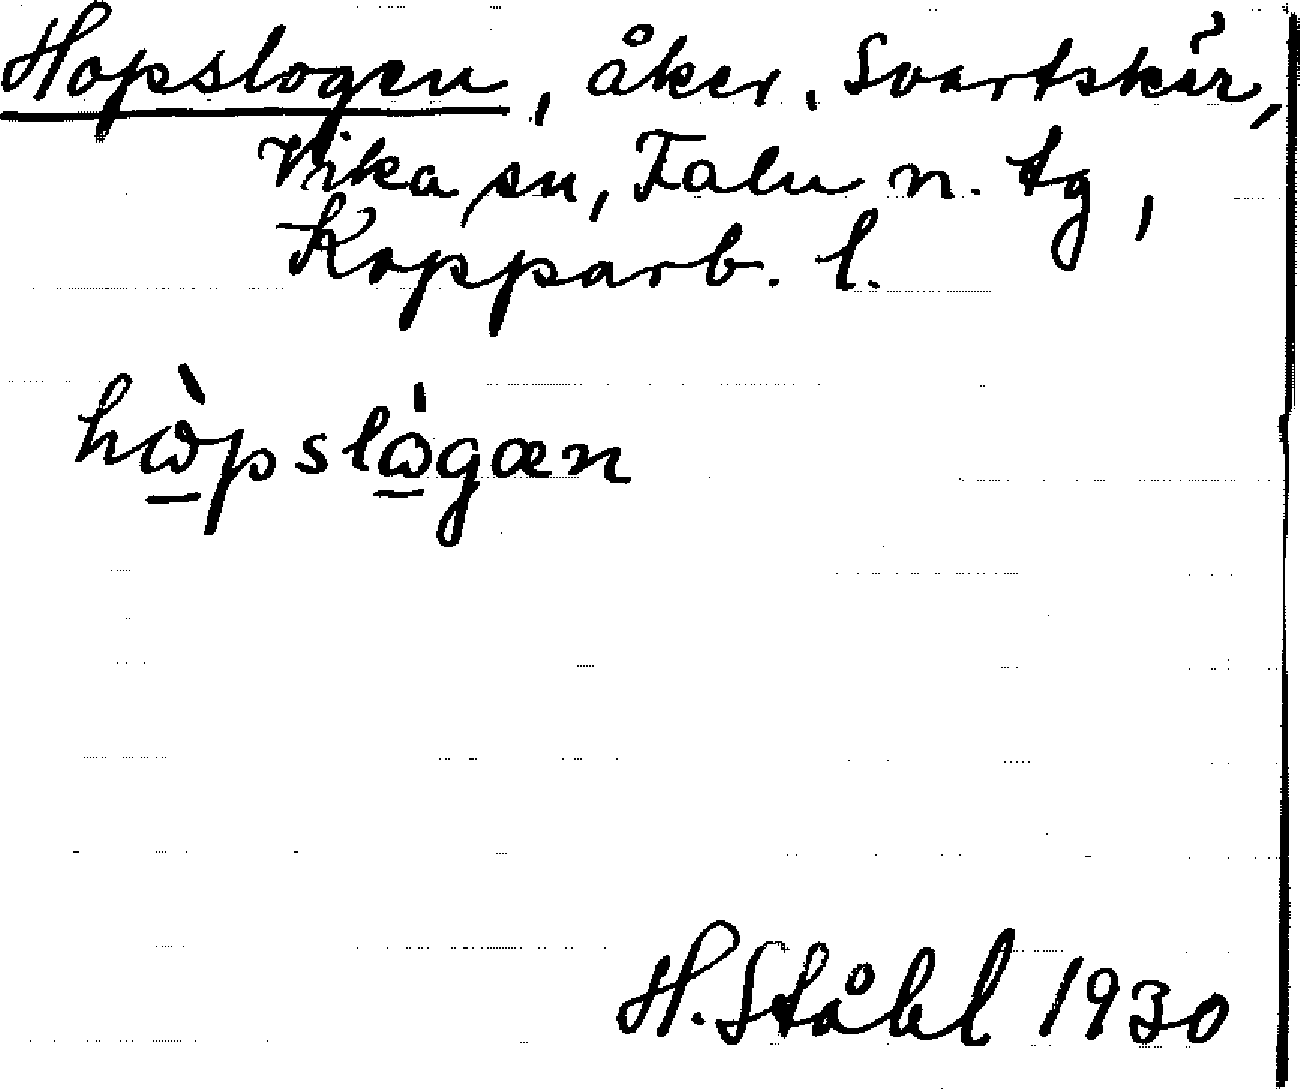 Hopslogen, åker, Svartskär,
Vika sn, Falu n. tg,
Kopparb. l.
hὼ̲pslὼ̲gæn
H. Ståhl 1930